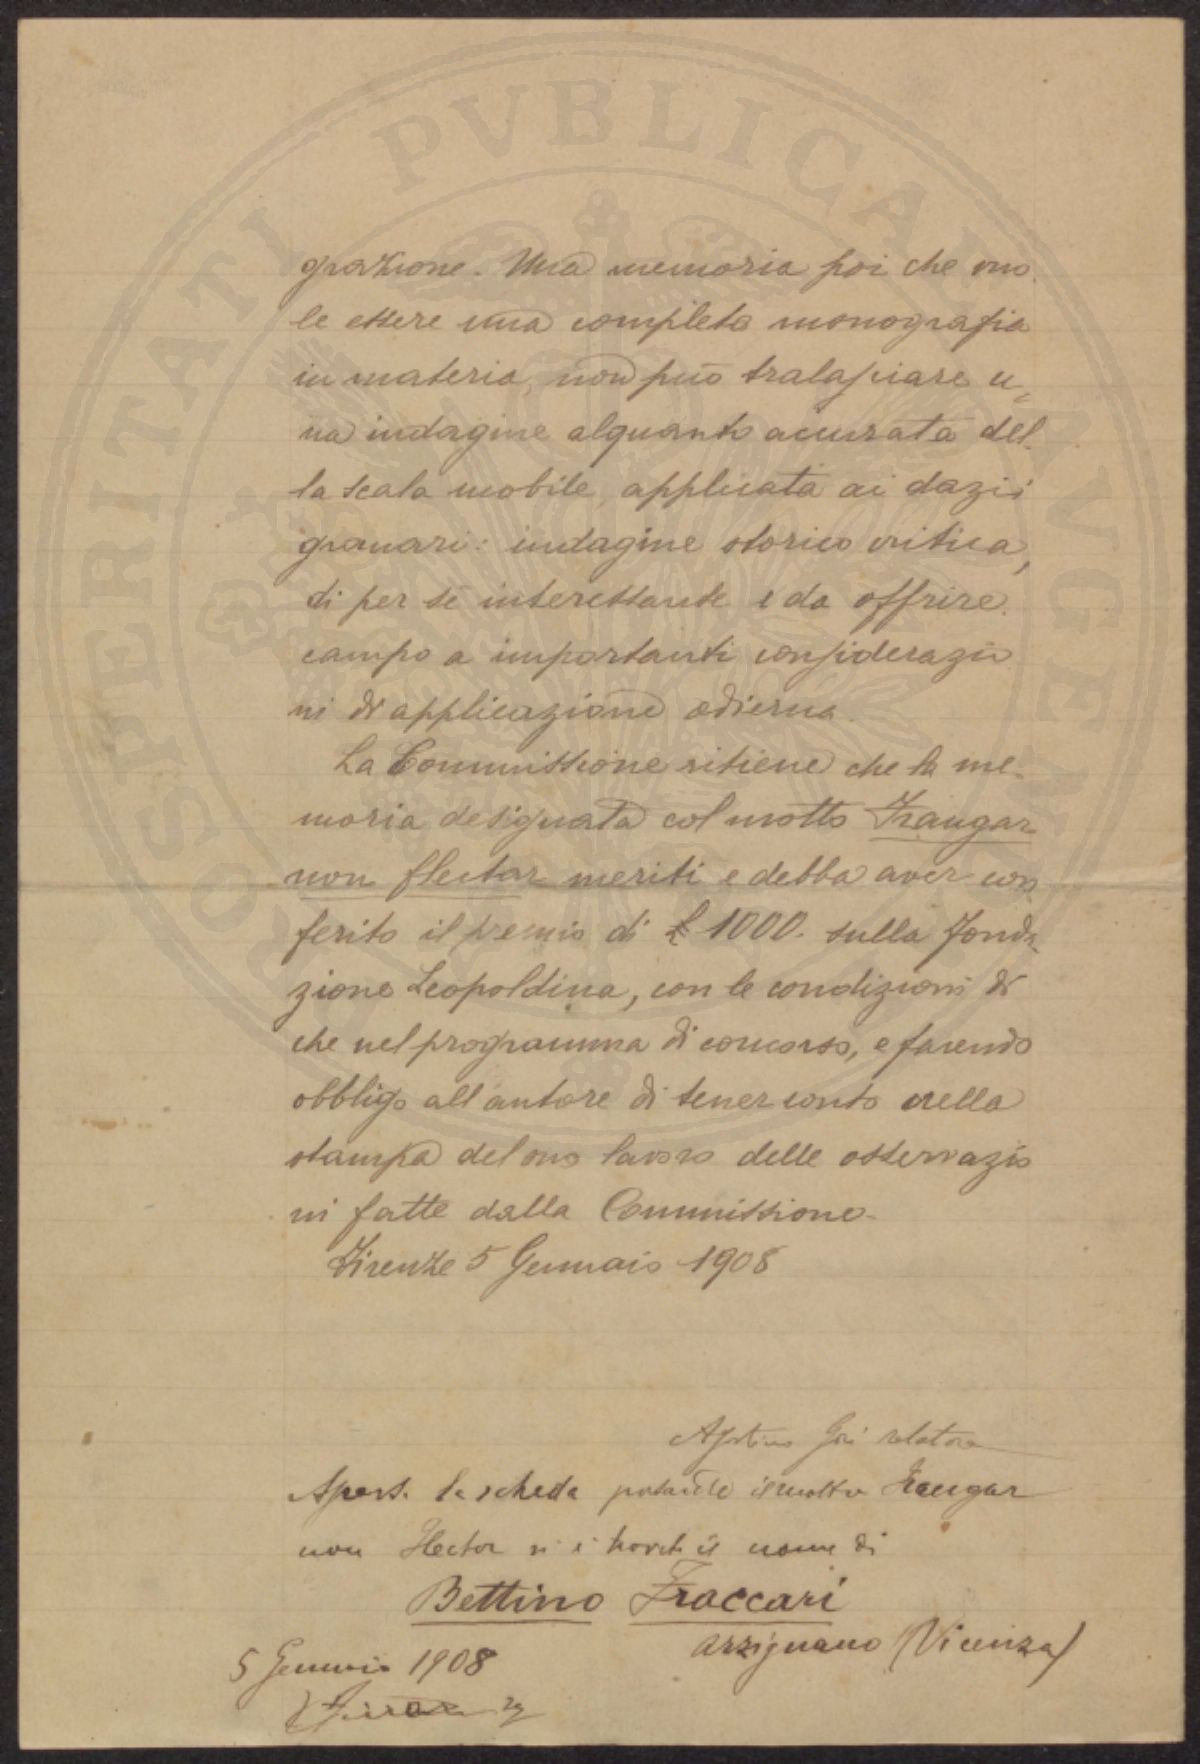 PROSPERITATI PVBLICAE AVGENDAE
grazione. Una memoria poi che vuo
le essere una completa monografia
in materia, non può tralasciare u=
na indagine alquanto accurata del
la scala mobile, applicata ai dazii
granari: indagine storico critica,
di per sè interessante e da offrire
campo a importanti considerazio
ni di applicazione odierna.
La Commissione ritiene che la me-
moria designata col motto Frangar
non flectar meriti e debba aver con
ferito il premio di £ 1000. sulla Fonda
zione Leopoldina, con le condizioni di
che nel programma di concorso, e facendo
obbligo all'autore di tener conto nella
stampa del suo lavoro delle osservazio
ni fatte dalla Commissione.
Firenze 5 Gennaio 1908
Agostino Gori relatore
Aperta la scheda portante il motto Frangar
non flector vi si trovò il nome di
Bettino Fraccari
Arzignano (Vicenza)
5 Gennaio 1908